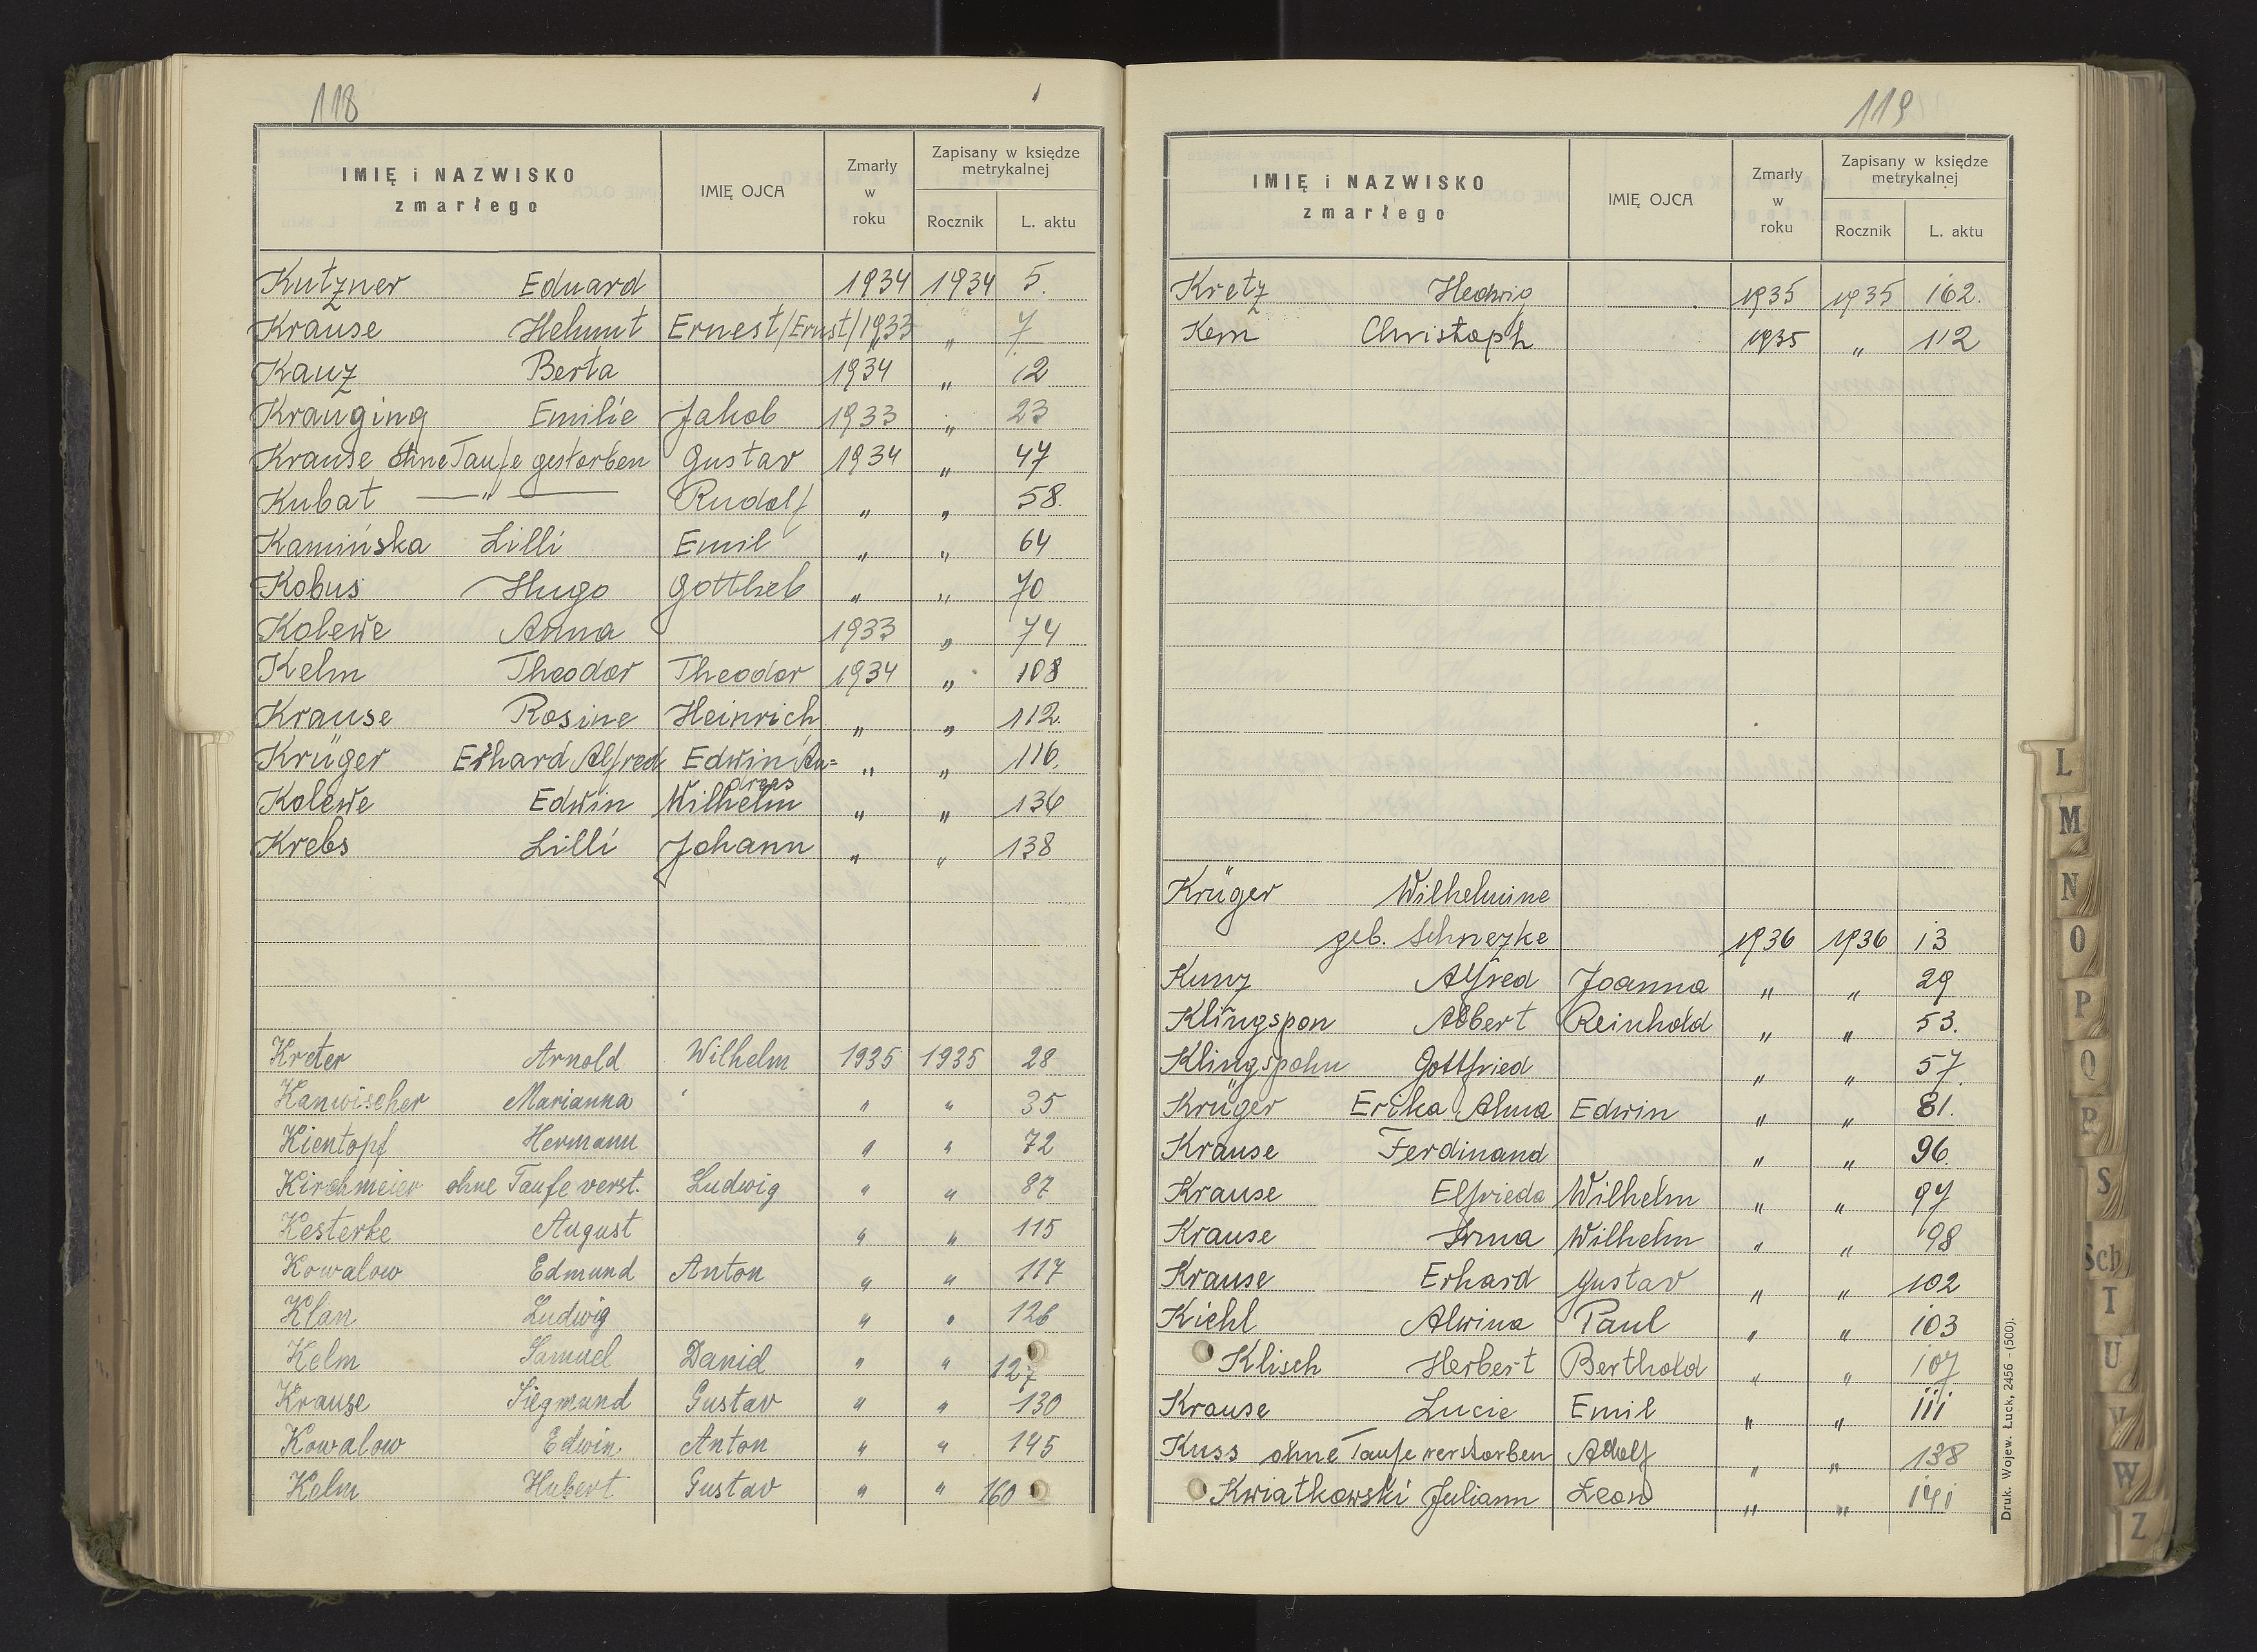 118
IMIĘ i NAZWISKO zmarłego IMIĘ OJCA Zmarły w roku Zapisany w księdze metrykalnej Rocznik L. aktu
Kutzner Eduard 1934 1934 5.
Krause Helmut Ernest/Ernst/ 1933 " 7.
Kauz Berta 1934 " 12
Krauging Emilie Jakob 1933 " 23
Krause ohne Taufe gestorben Gustav 1934 " 47
Kubat —"— Rudolf " " 58.
Kamińska Lilli Emil " " 64
Kobus Hugo Gottlieb " " 70
Kolewe Anna 1933 " 74
Kelm Theodor Theodor 1934 " 108
Krause Rosine Heinrich " " 112.
Krüger Erhard Alfred Edwin An=
drees " " 116.
Kolewe Edwin Wilhelm " " 136
Krebs Lilli Johann " " 138
Kreter Arnold Wilhelm 1935 1935 28
Kanwischer Marianna " " 35
Kientopf Hermann " " 72
Kirchmeier ohne Taufe verst. Ludwig " " 87
Kesterke August " " 115
Kowalow Edmund Anton " " 117
Klan Ludwig " " 126
Kelm Samuel Daniel " " 127
Krause Siegmund Gustav " " 130
Kowalow Edwin Anton " " 145
Kelm Hubert Gustav " " 160
119
IMIĘ i NAZWISKO zmarłego IMIĘ OJCA Zmarły w roku Zapisany w księdze metrykalnej Rocznik L. aktu
Kretz Hedwig 1935 1935 162.
Kern Christoph 1935 " 112
Krüger Wilhelmine
geb. Schnezke 1936 1936 13
Kunz Alfred Joanna " " 29
Klingspon Albert Reinhold " " 53.
Klingspohn Gottfried " " 57.
Krüger Erika Alma Edwin " " 81.
Krause Ferdinand " " 96.
Krause Elfrieda Wilhelm " " 97
Krause Irma Wilhelm " " 98
Krause Erhard Gustav " " 102
Kiehl Alwina Paul " " 103
Klisch Herbert Berthold " " 107
Krause Lucie Emil " " 111
Kuss ohne Taufe verstorben Adolf " " 138
Kwiatkowski Juliann Leon " " 141
Druk. Wojew. Łuck, 2456 - (500).
L
M
N
O
P
Q
R
S
Sch
T
U
V
W
Z